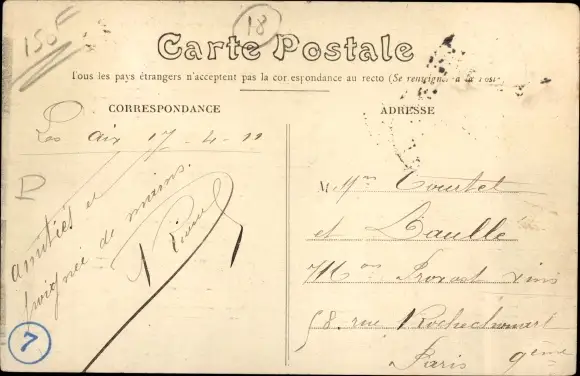 150F
18
Carte Postale
Tous les pays étrangers n'acceptent pas la correspondance au recto (Se renseigner à la Poste)
CORRESPONDANCE
ADRESSE
Les aix 17-4-11
D
amitiés et
poignée de mains.
M. Mrs Tourtet
et Laulle
Mon Provost vins
58. rue Rochechouart
Paris 9ème
7